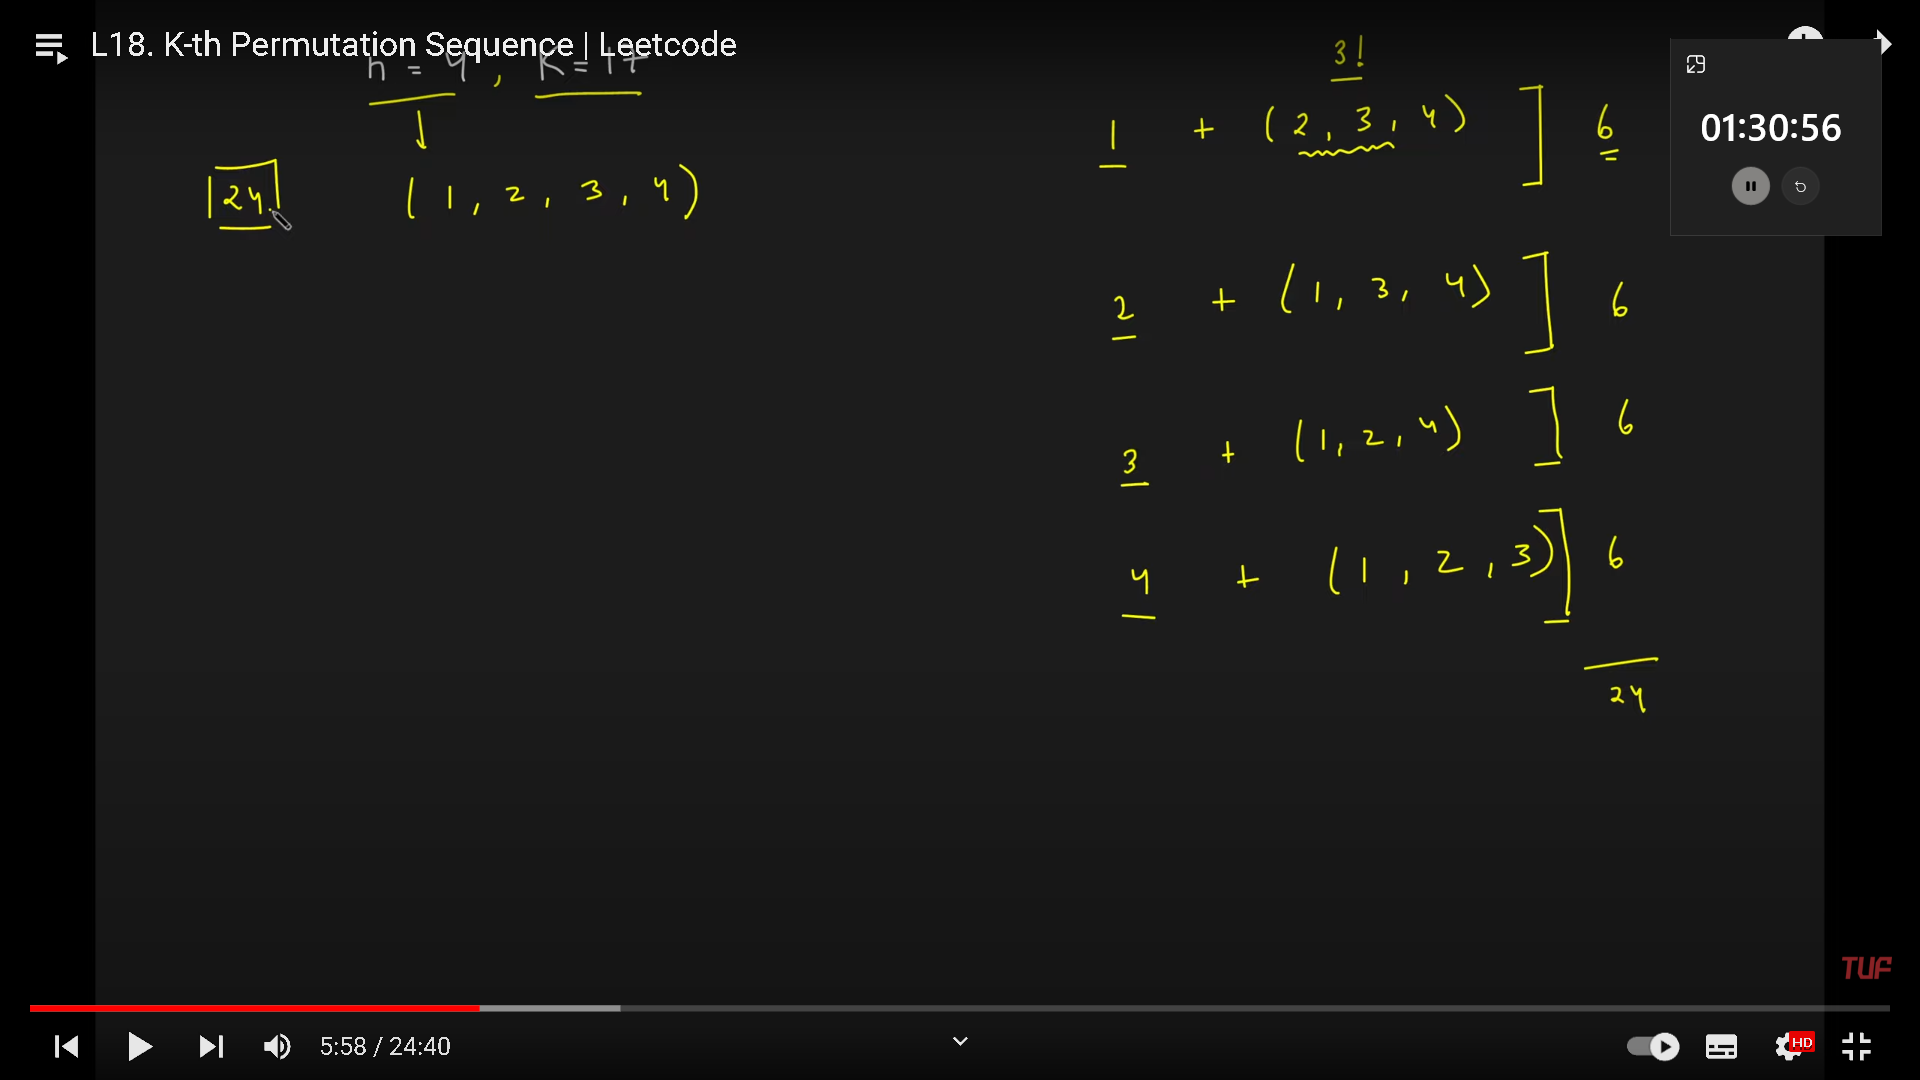 L18. K-th Permutation Sequence | Leetcode
n = 4 , K = 17
24 ( 1 , 2 , 3 , 4 )
3!
1 + ( 2 , 3 , 4 ) ] 6
2 + ( 1 , 3 , 4 ) ] 6
3 + ( 1 , 2 , 4 ) ] 6
4 + ( 1 , 2 , 3 ) ] 6
24
01:30:56
TUF
5:58 / 24:40
HD